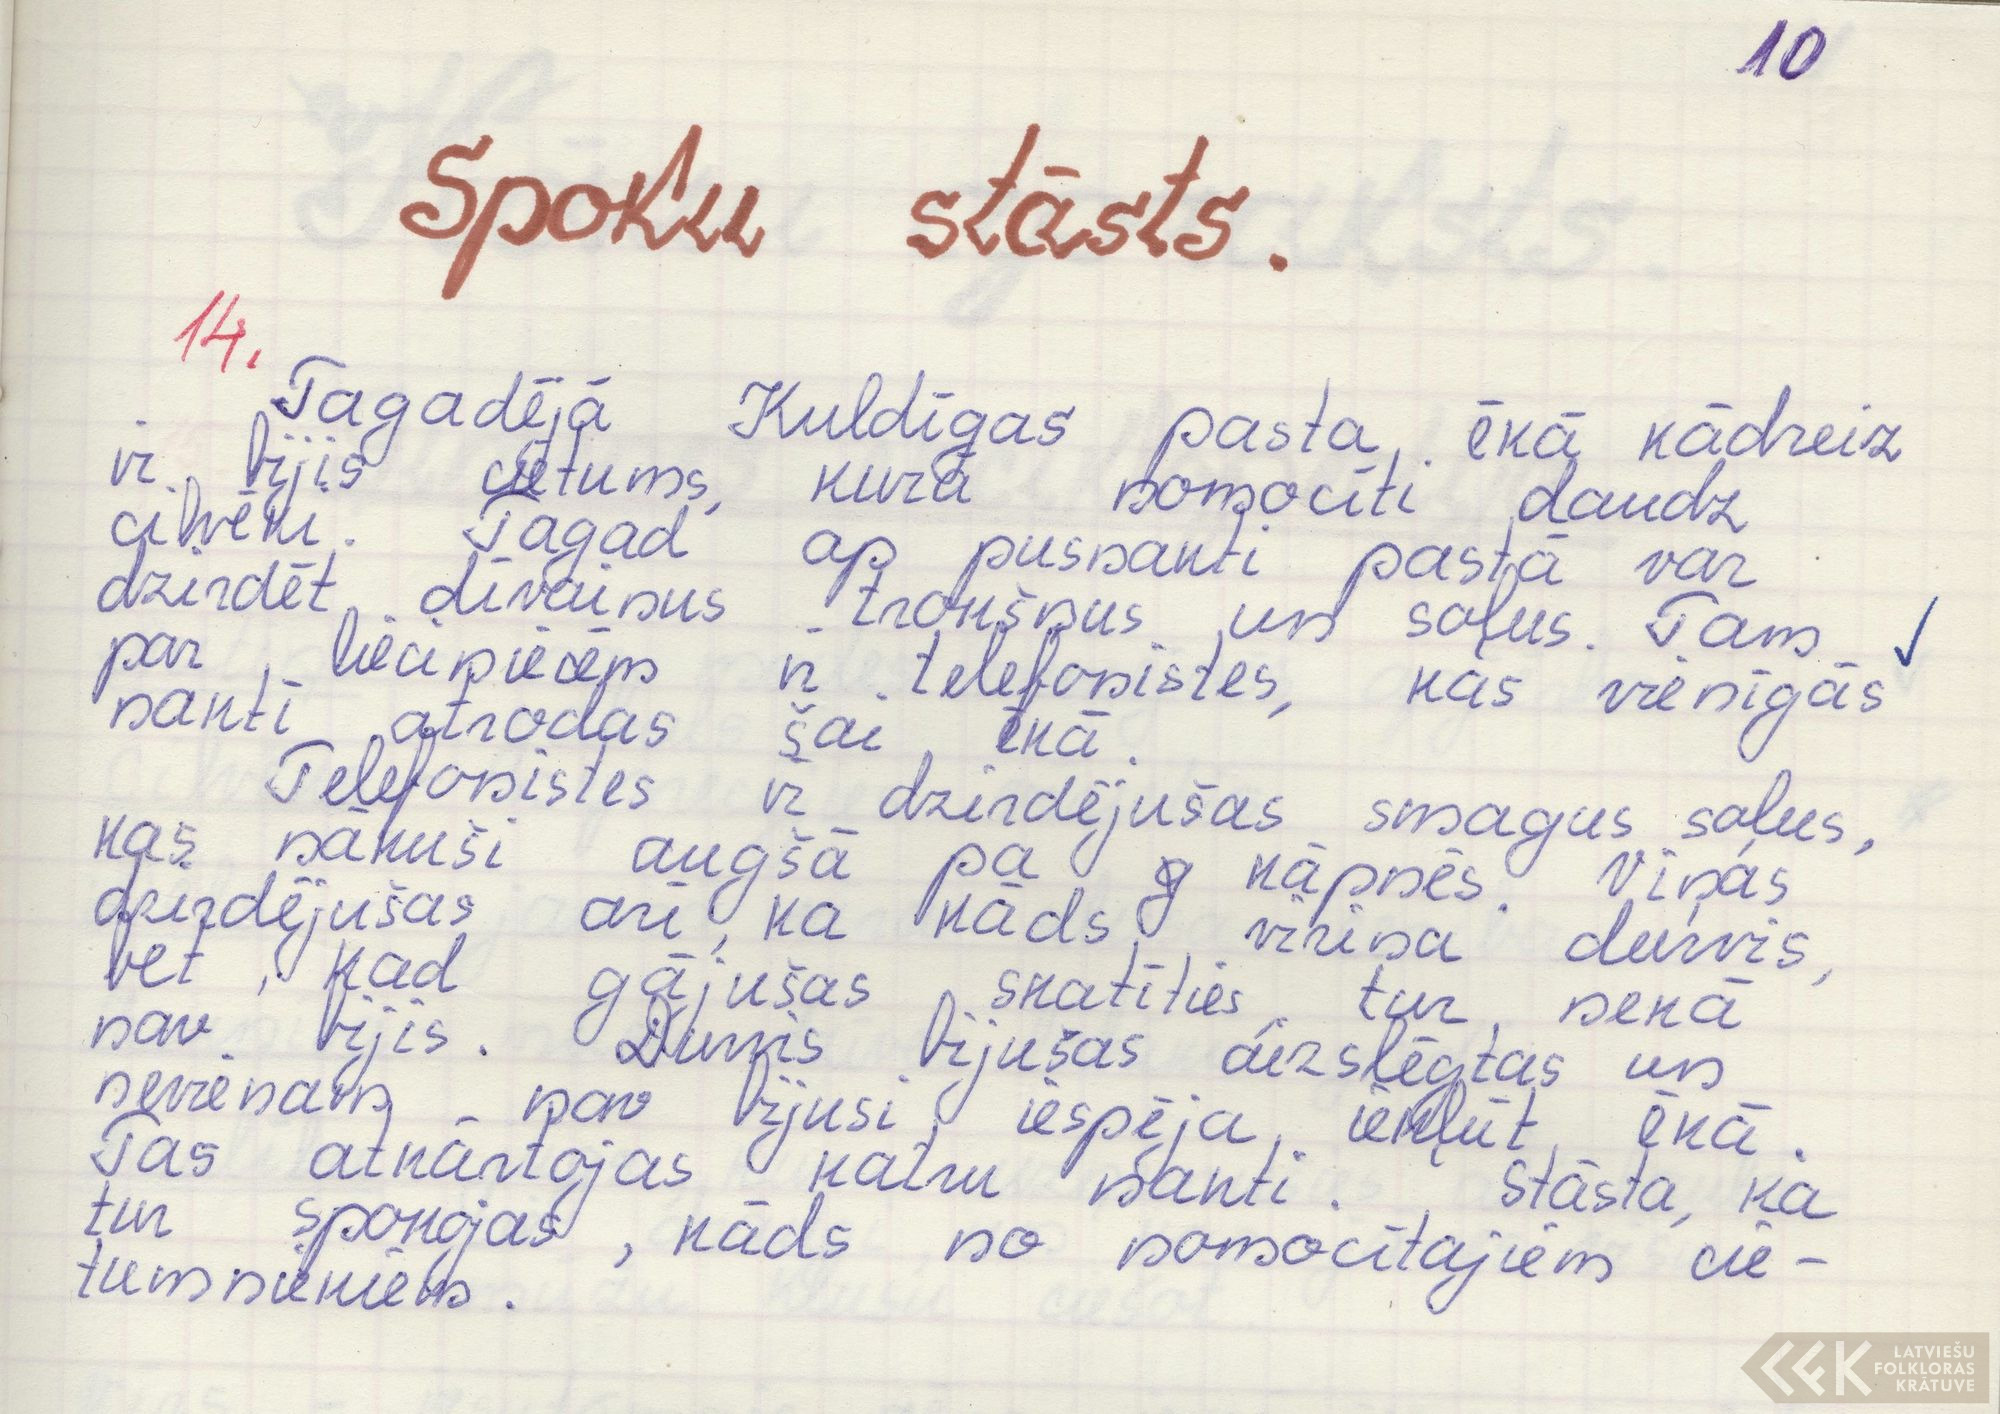 10
Spoku stāsts.
14.
Tagadējā Kuldīgas pasta ēkā kādreiz
ir bijis cietums, kurā nomocīti daudz
cilvēki. Tagad ap pusnakti pastā var
dzirdēt dīvainus trokšņus un soļus. Tam
par lieciniecēm ir telefonistes, kas vienīgās
naktī atrodas šai ēkā.
Telefonistes ir dzirdējušas smagus soļus,
kas nākuši augšā pa kāpnēs. Viņas
dzirdējušas arī, ka kāds virina durvis,
bet, kad gājušas skatīties, tur nekā
nav bijis. Durvis bijušas aizslēgtas un
nevienam nav bijusi iespēja iekļūt ēkā.
Tas atkārtojas katru nakti. Stāsta, ka
tur spokojas, kāds no nomocītajiem cie-
tumniekiem.
LATVIEŠU
FOLKLORAS
KRĀTUVE